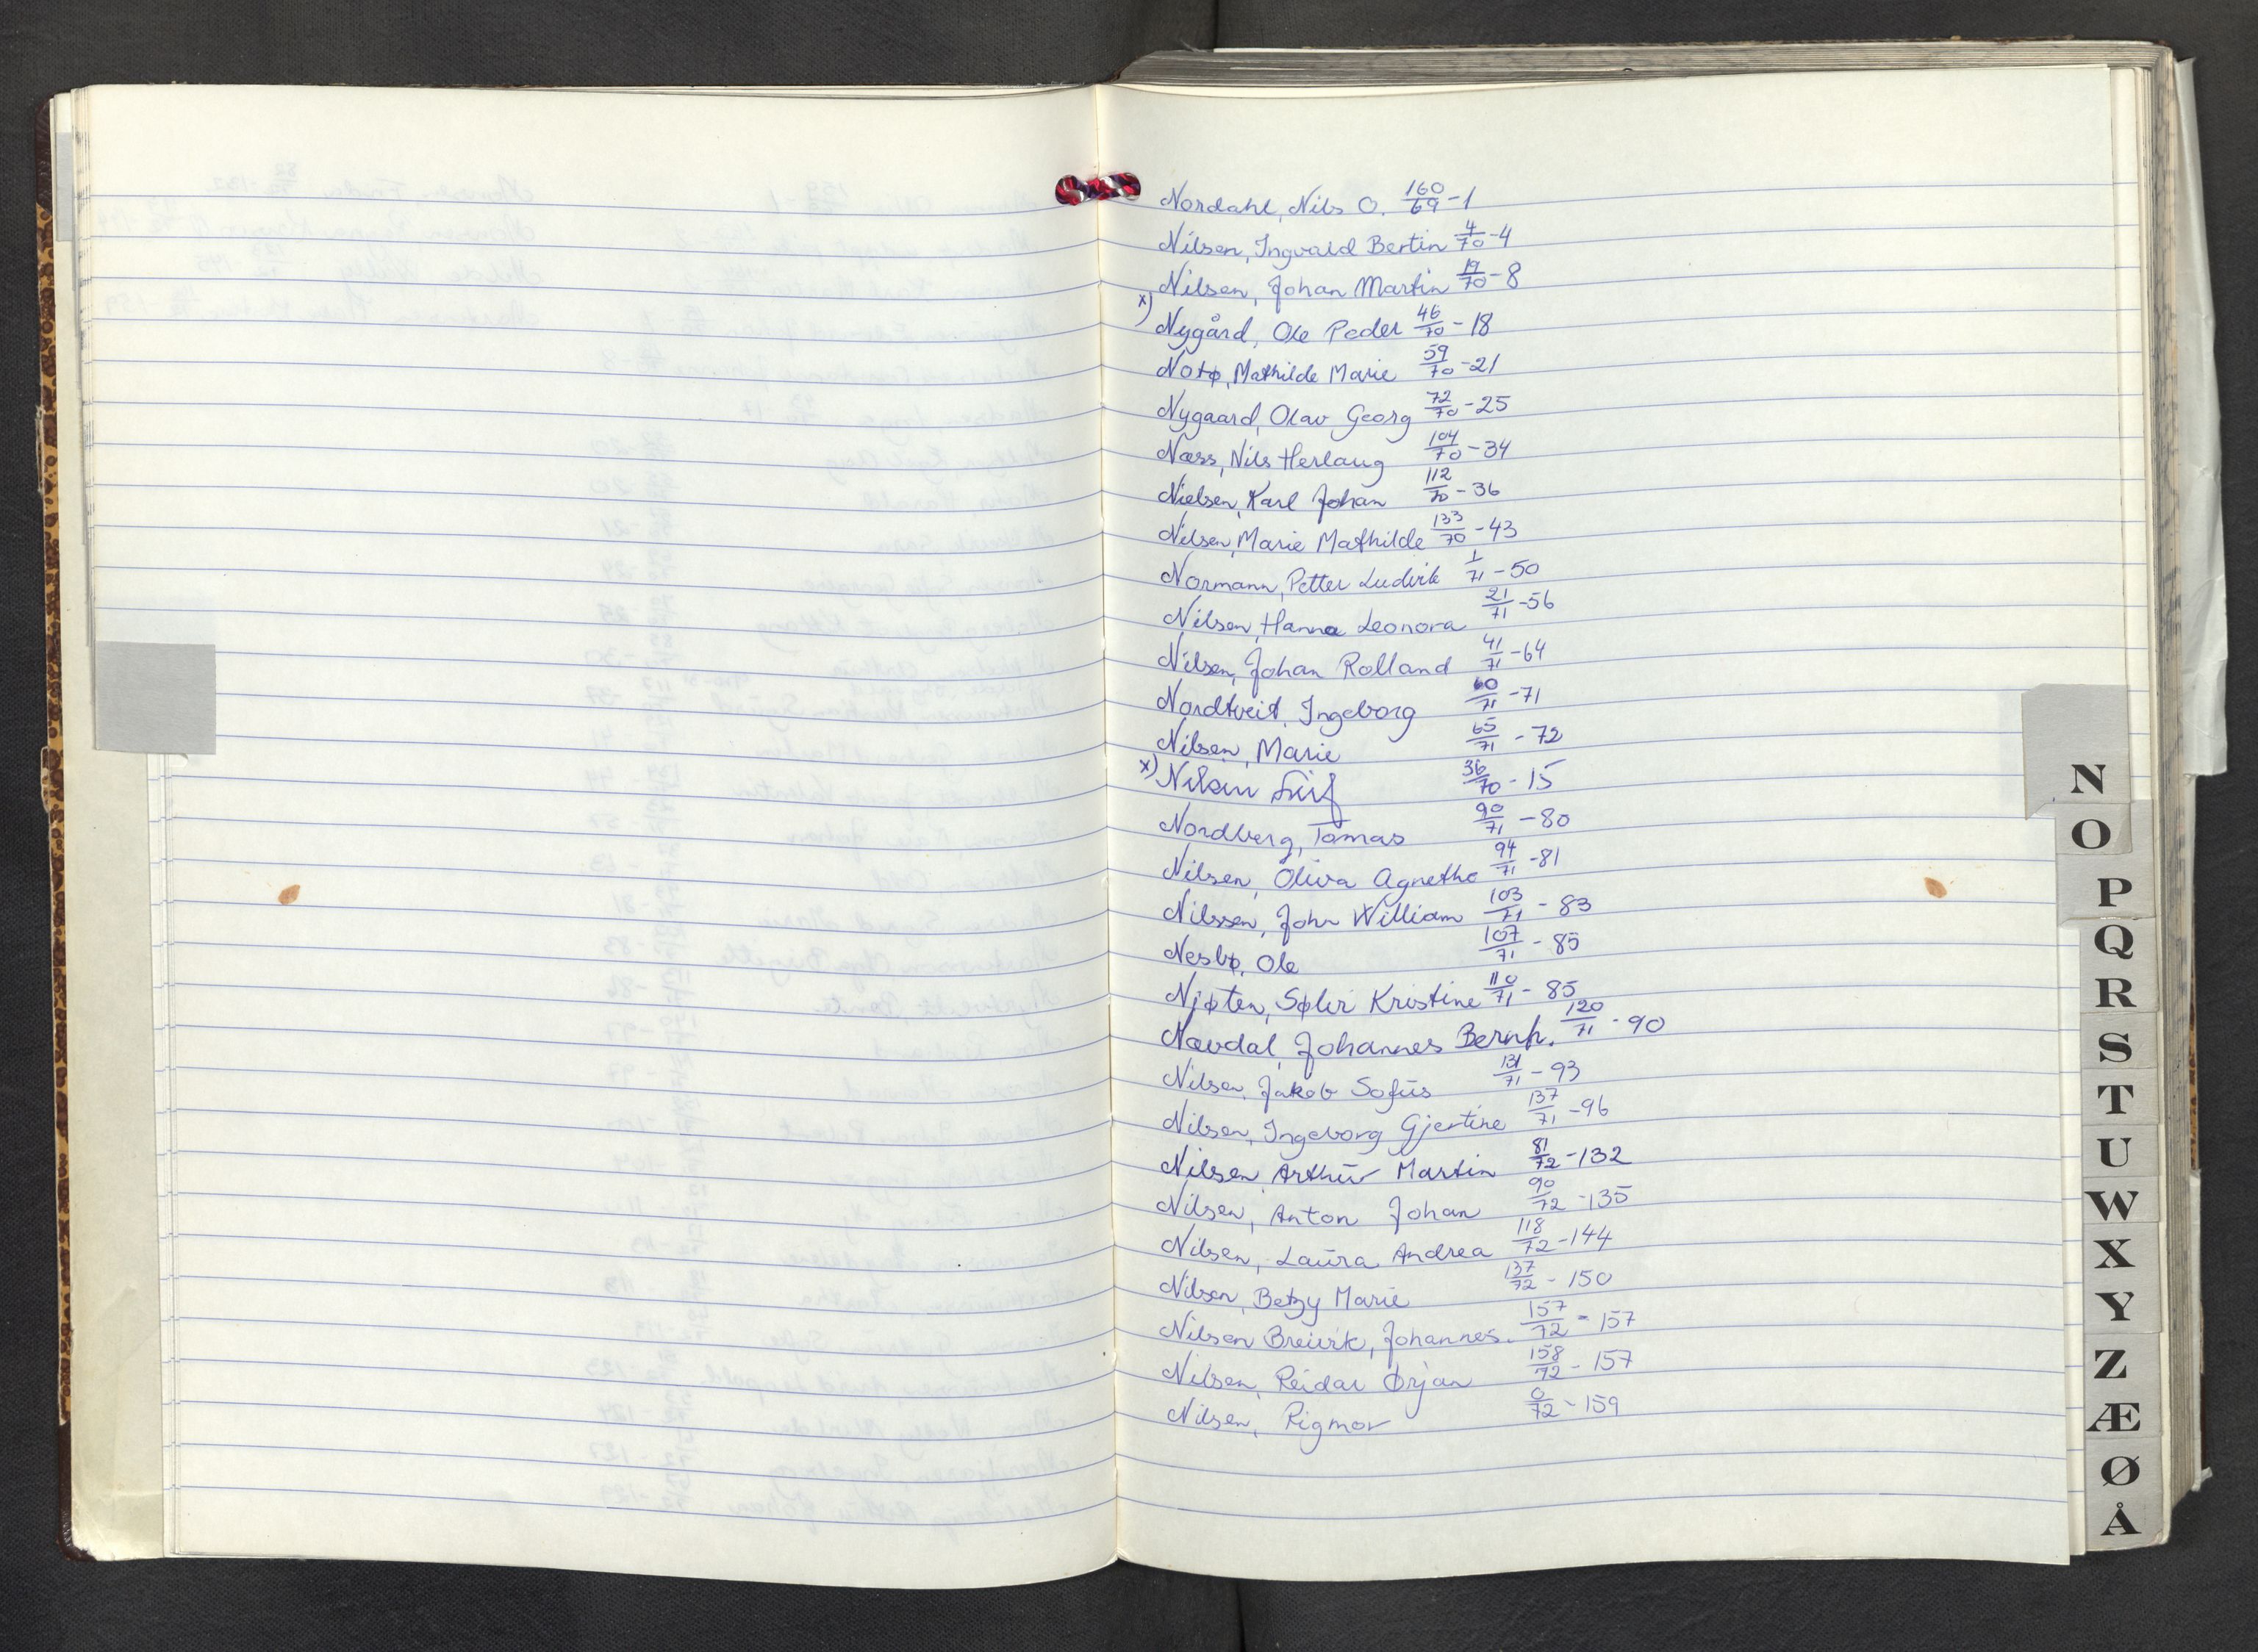 Nordahl, Nils O. 160/69-1
Nilsen, Ingvald Bertin 4/70-4
Nilsen, Johan Martin 19/70-8
x) Nygård, Ole Peder 46/70-18
Notø, Mathilde Marie 59/70-21
Nygaard, Olav Georg 72/70-25
Næss, Nils Herlaug 104/70-34
Nielsen, Karl Johan 112/70-36
Nilsen, Marie Mathilde 133/70-43
Normann, Petter Ludvik 1/71-50
Nilsen, Hanna Leonora 21/71-56
Nilsen, Johan Rolland 41/71-64
Nordtveit, Ingeborg 60/71-71
Nilsen, Marie 65/71-72
x) Nilsen Leif 36/70-15
Nordberg, Tomas 90/71-80
Nilsen, Oliva Agnethe 94/71-81
Nilssen, John William 103/71-83
Nesbø, Ole 107/71-85
Njøten, Sølvi Kristine 110/71-85
Nævdal, Johannes Bernh. 120/71-90
Nilsen, Jakob Sofus 131/71-93
Nilsen, Ingeborg Gjertine 137/71-96
Nilsen, Arthur Martin 81/72-132
Nilsen, Anton Johan 90/72-135
Nilsen, Laura Andrea 118/72-144
Nilsen, Betzy Marie 137/72-150
Nilsen Breivik, Johannes. 157/72-157
Nilsen, Reidar Ørjan 158/72-157
Nilsen, Rigmor 0/72-159
N
O
P
Q
R
S
T
U
W
X
Y
Z
Æ
Ø
Å